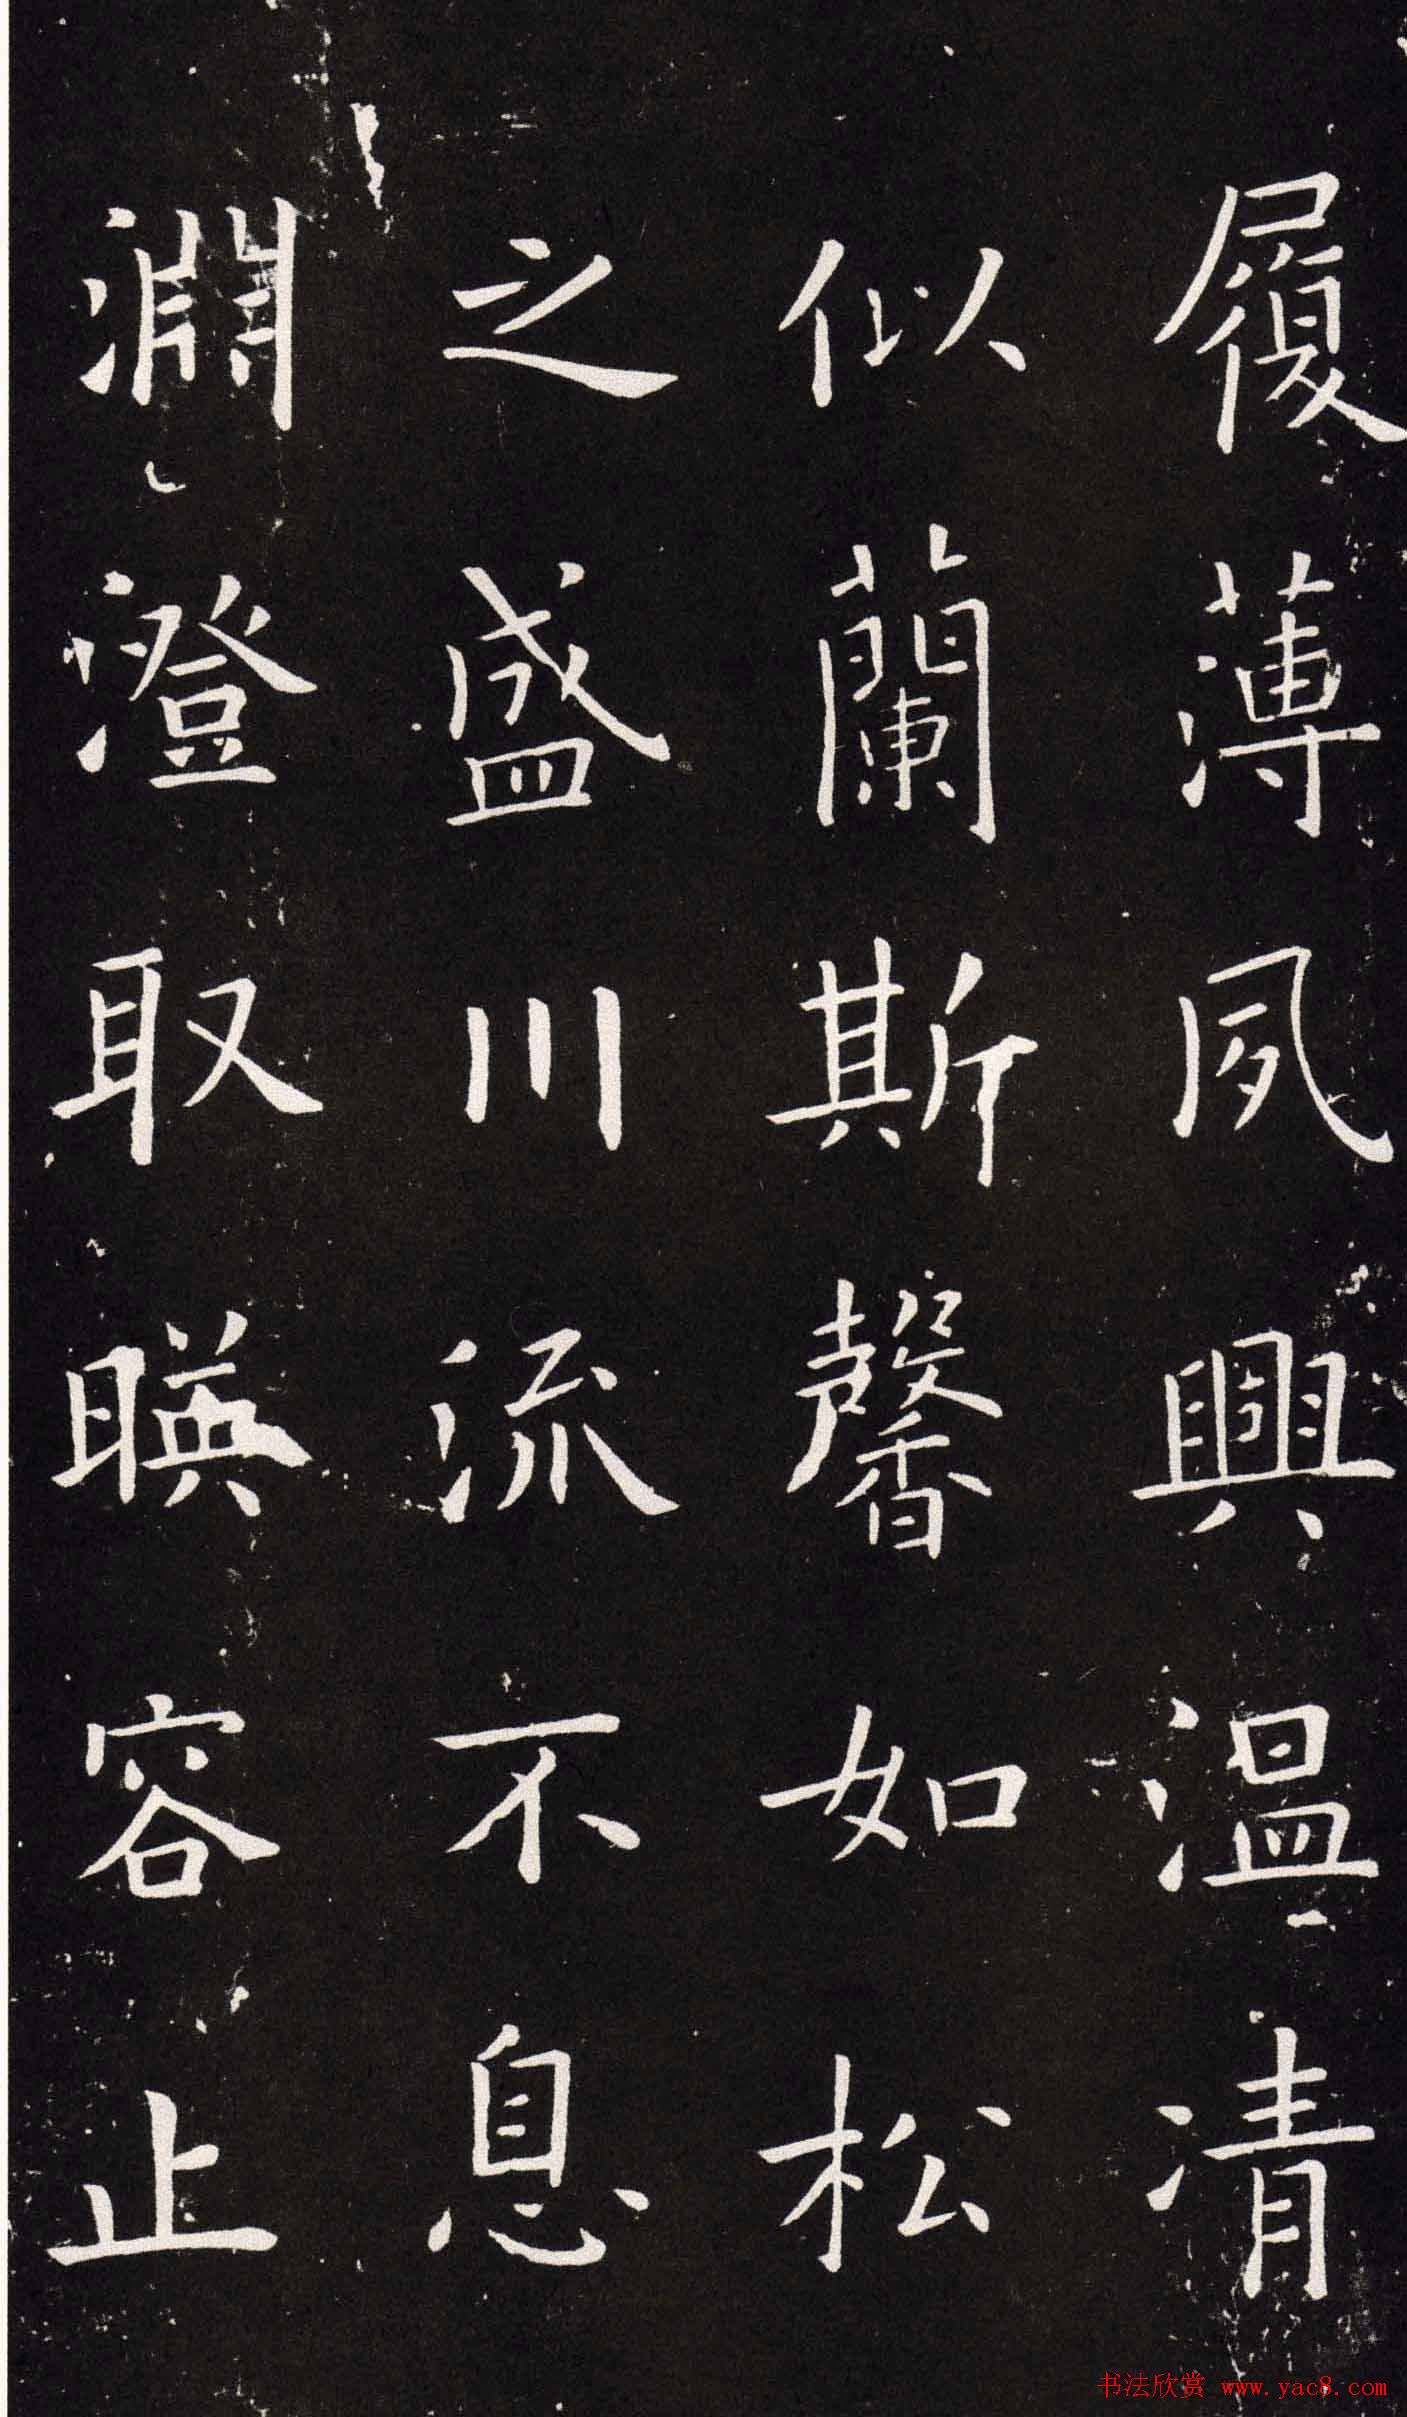 履薄夙興溫清
似蘭斯馨如松
之盛川流不息
淵澄取暎容止
书法欣赏 www.yac8.com